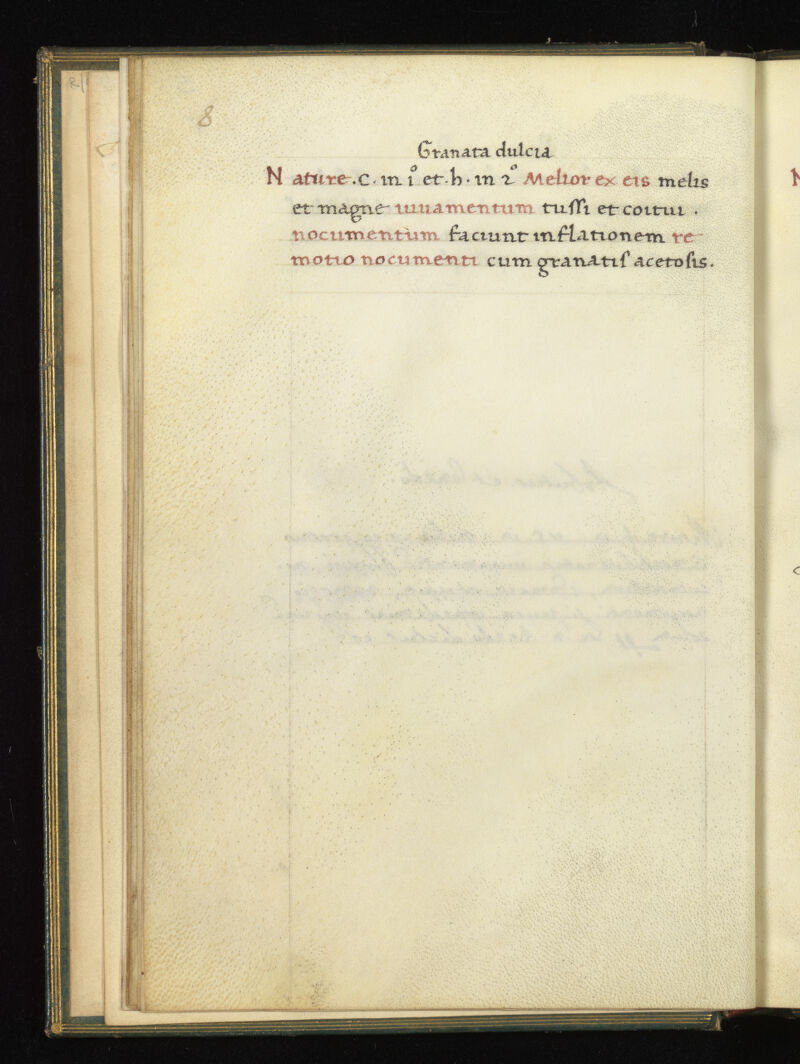 8
Granata dulcia
Nature .c. in i° et .h. in 2° Melior ex eis melis
et magne iuuamentum tussi et coitui .
nocumentum faciunt inflationem re-
motio nocumenti cum granatis acetosis.